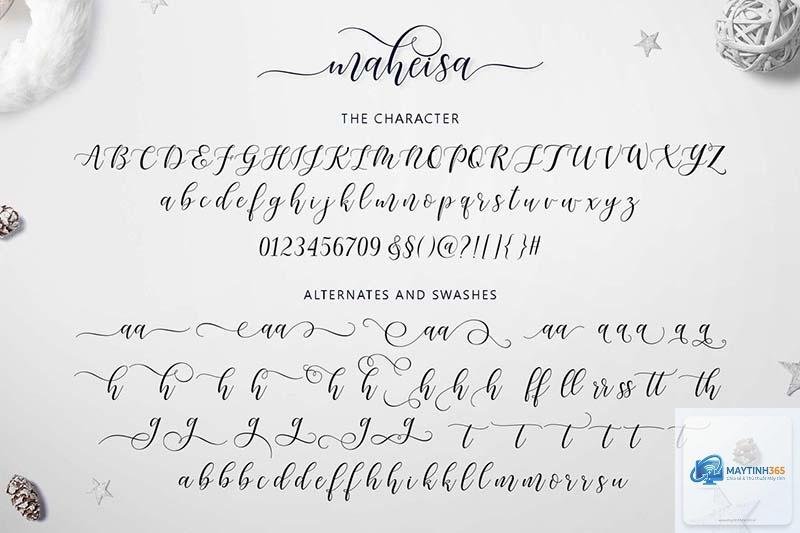 maheisa
THE CHARACTER
ABCDEFGHIJKLMNOPQRSTUVWXYZ
abcdefghijklmnopqrstuvwxyz
0123456709 &§()@?![]{}#
ALTERNATES AND SWASHES
aa aa aa aa a a a a a
h h h h h h h h h ff ll rr ss tt th
g g g g g g t t t t t t
abbbcddeffhhikkllmmorrsu
MAYTINH365
Chia sẻ & Thủ thuật Máy tính